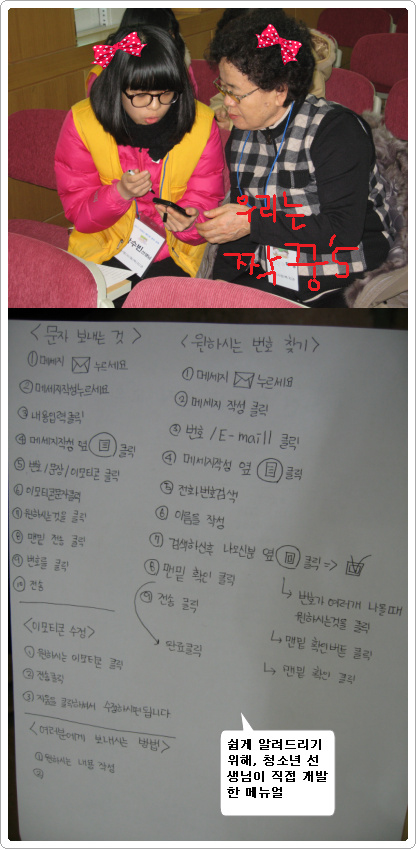 우리는
짝꿍's
수빈
<문자 보내는 것>
① 메세지 누르세요
② 메세지작성누르세요
③ 내용입력클릭
④ 메세지작성 옆 클릭
⑤ 번호/문장/이모티콘 클릭
⑥ 이모티콘문자클릭
⑦ 원하시는것을 클릭
⑧ 맨밑 전송 클릭
⑨ 번호를 클릭
⑩ 전송
<이모티콘 수정>
① 원하시는 이모티콘 클릭
② 전송클릭
③ 지움을 클릭하셔서 수정하시면됩니다
<여러분에게 보내시는 방법>
① 원하시는 내용 작성
②
<원하시는 번호 찾기>
① 메세지 누르세요
② 메세지 작성 클릭
③ 번호/E-maill 클릭
④ 메세지작성 옆 클릭
⑤ 전화번호검색
⑥ 이름을 작성
⑦ 검색하신후 나오신분 옆 클릭 ⇒
⑧ 맨밑 확인 클릭
⑨ 전송 클릭
완료클릭
↳ 번호가 여러개 나올때
원하시는것을 클릭
↳ 맨밑 확인버튼 클릭
↳ 맨밑 확인 클릭
쉽게 알려드리기
위해, 청소년 선
생님이 직접 개발
한 메뉴얼